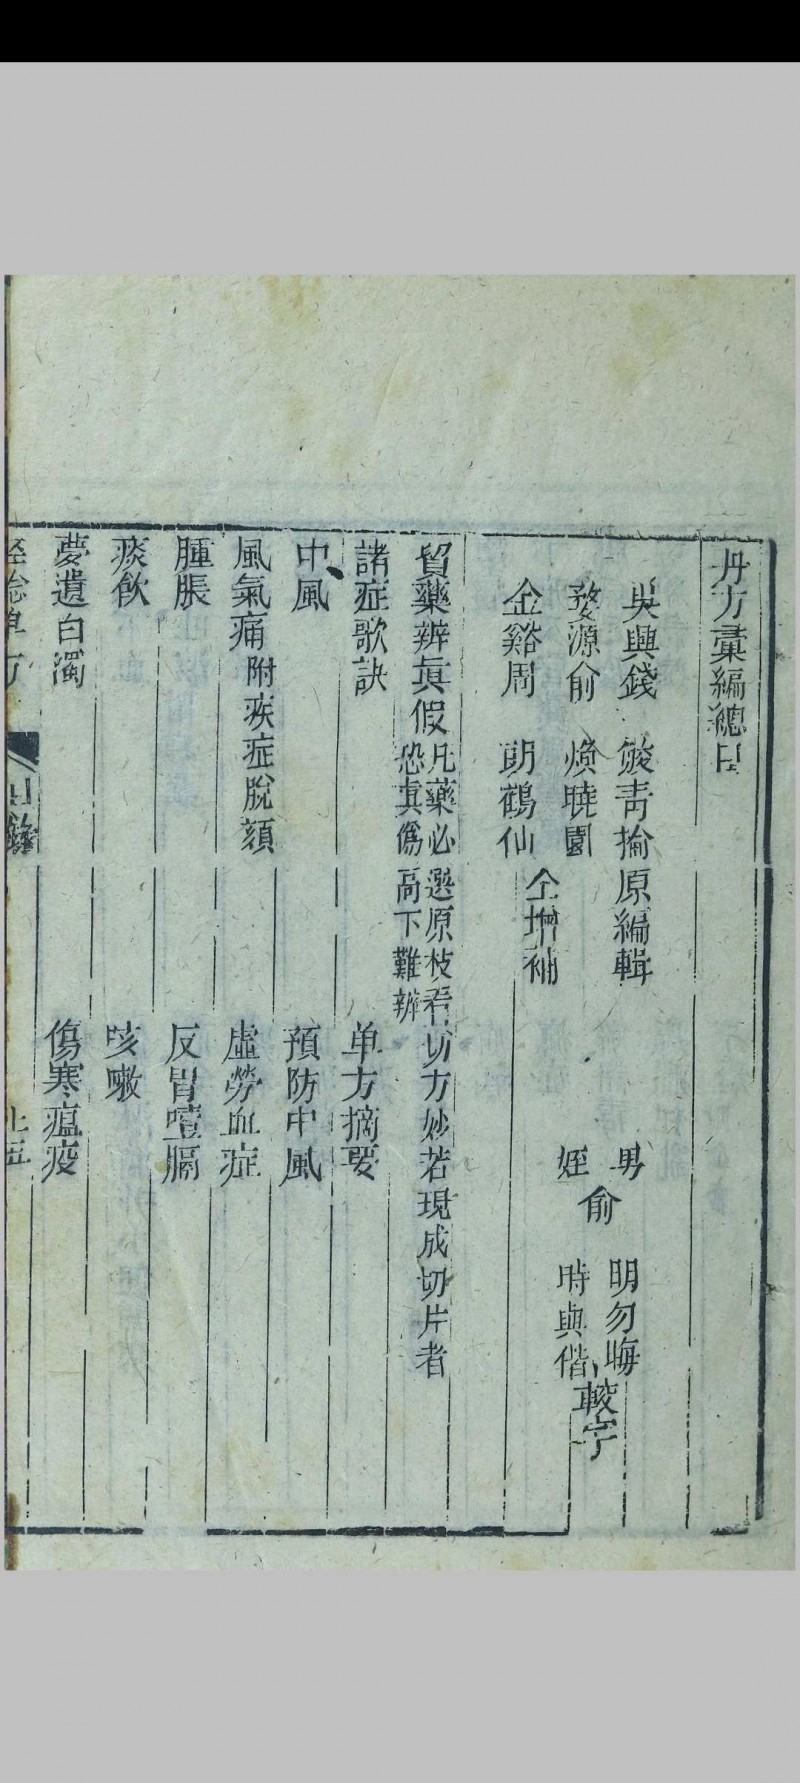 丹方彙編總目
吳興錢 俊青掄原編輯
婺源俞 煥曉園
金谿周 朗鶴仙
仝增補
男 明勿晦
姪 時與偕
俞
較字
買藥辨真假 凡藥必選原枝看切方妙若現成切片者
恐真偽高下難辨
諸症歌訣 单方摘要
中風 預防中風
風氣痛附疾症脫頦 虛勞血症
腫脹 反胃噎膈
痰飲 咳嗽
夢遺白濁 傷寒瘟疫
目錄